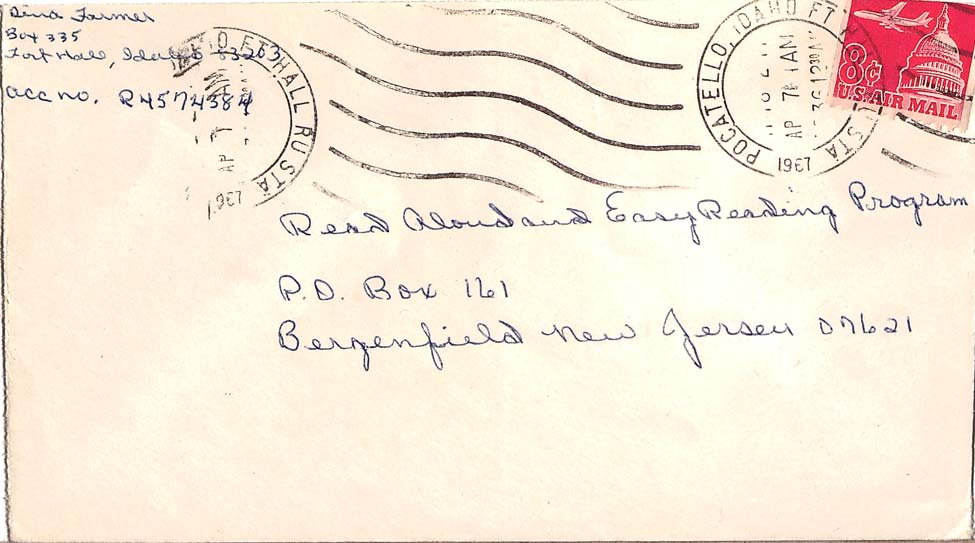 Dina Farmer
Box 335
Fort Hall, Idaho 83203
acc no. R4574384
IDAHO FT HALL RU STA
AP 7
1967
POCATELLO, IDAHO FT
STA
AP 7 1 AM
1967
8¢
U.S. AIR MAIL
Read Aloud and Easy Reading Program
P.O. Box 161
Bergenfield New Jersey 07621